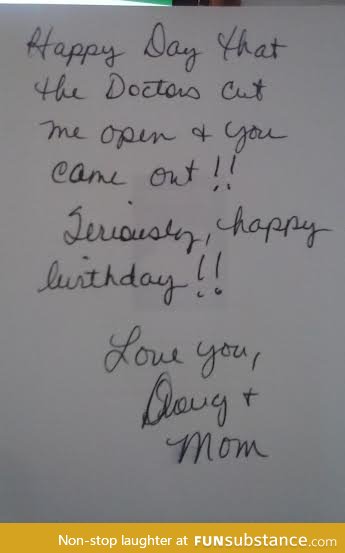 Happy Day that
the Doctors cut
me open + you
came out!!
Seriously, happy
birthday!!
Love you,
Doug +
Mom
Non-stop laughter at FUNsubstance.com